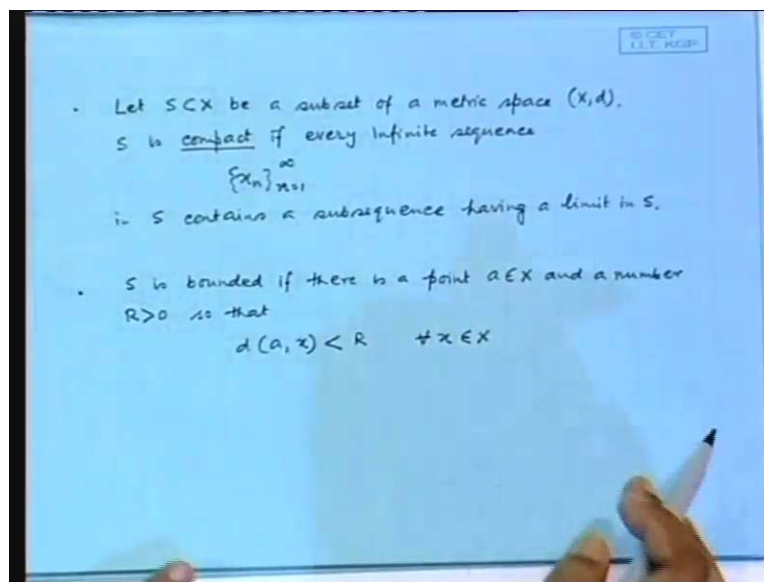 © CET
I.I.T. KGP
. Let S ⊂ X be a subset of a metric space (X, d).
S is compact if every infinite sequence
{xₙ}ₙ₌₁^∞
in S contains a subsequence having a limit in S.
. S is bounded if there is a point a ∈ X and a number
R > 0 so that
d(a, x) < R ∀ x ∈ X